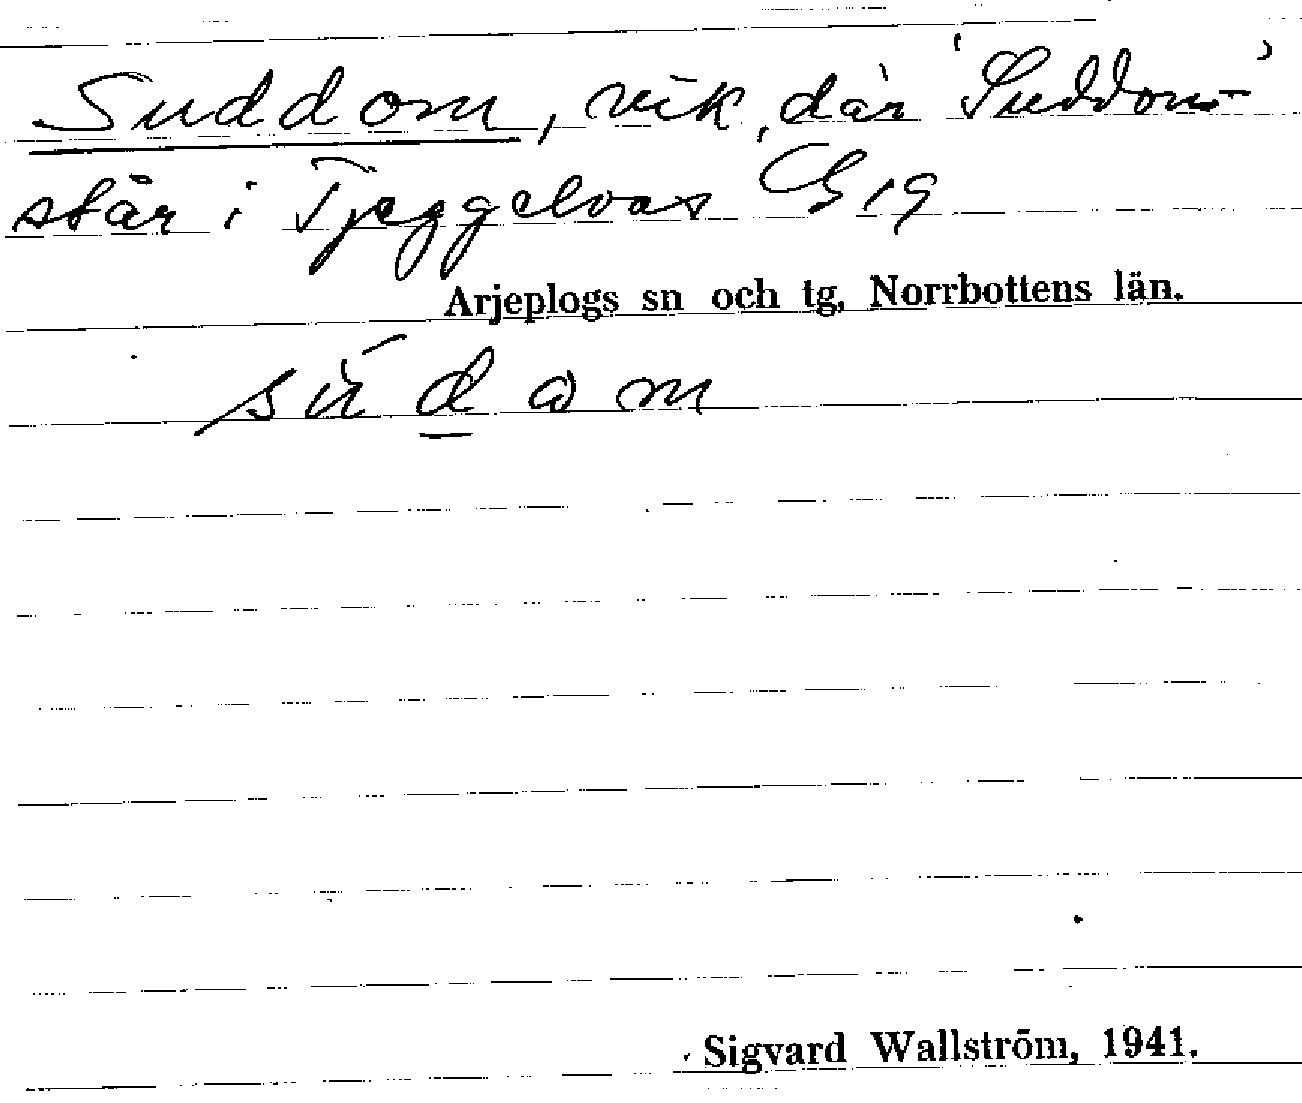 Suddom, vik, där 'Suddom'
står i Tjeggelvas G 19
Arjeplogs sn och tg, Norrbottens län.
Sigvard Wallström, 1941.